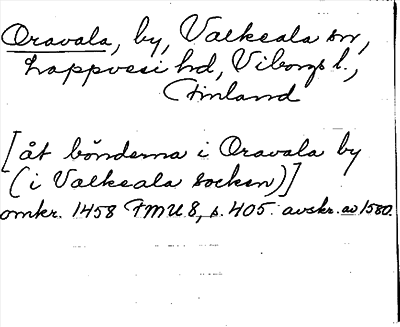 Oravala, by, Valkeala sn,
Lappvesi hd, Viborgs l.,
Finland
[åt bönderna i Oravala by
(i Valkeala socken)]
omkr. 1458 FMU 8, s. 405. avskr. av 1580.